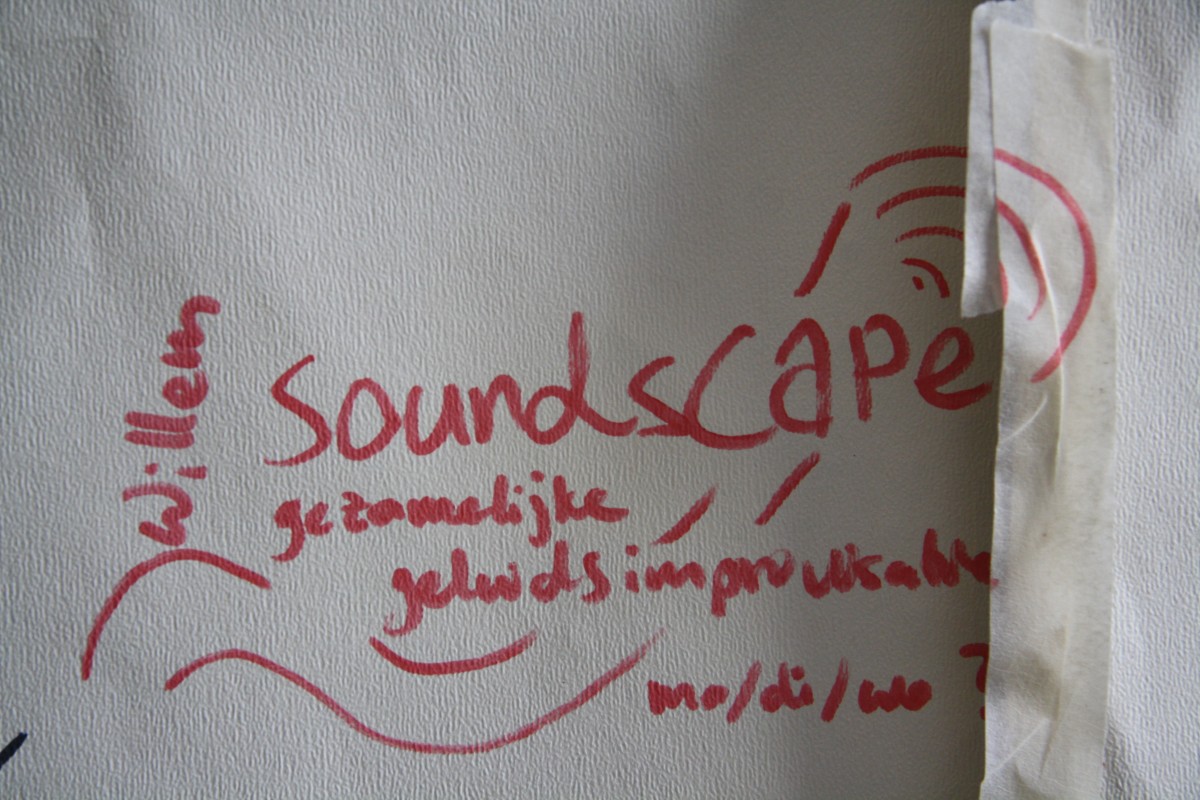 Willem
soundscape
gezamelijke
geluidsimprovisatie
mo/di/wo ?